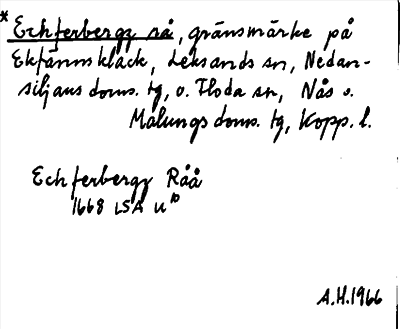 *Echferbergz rå, gränsmärke på
Ekfännsklack, Leksands sn, Nedan-
siljans doms. tg, o. Floda sn, Nås o.
Malungs doms. tg, Kopp. l.
Echferbergz Råå
1668 LSA U¹⁰
A.H.1966